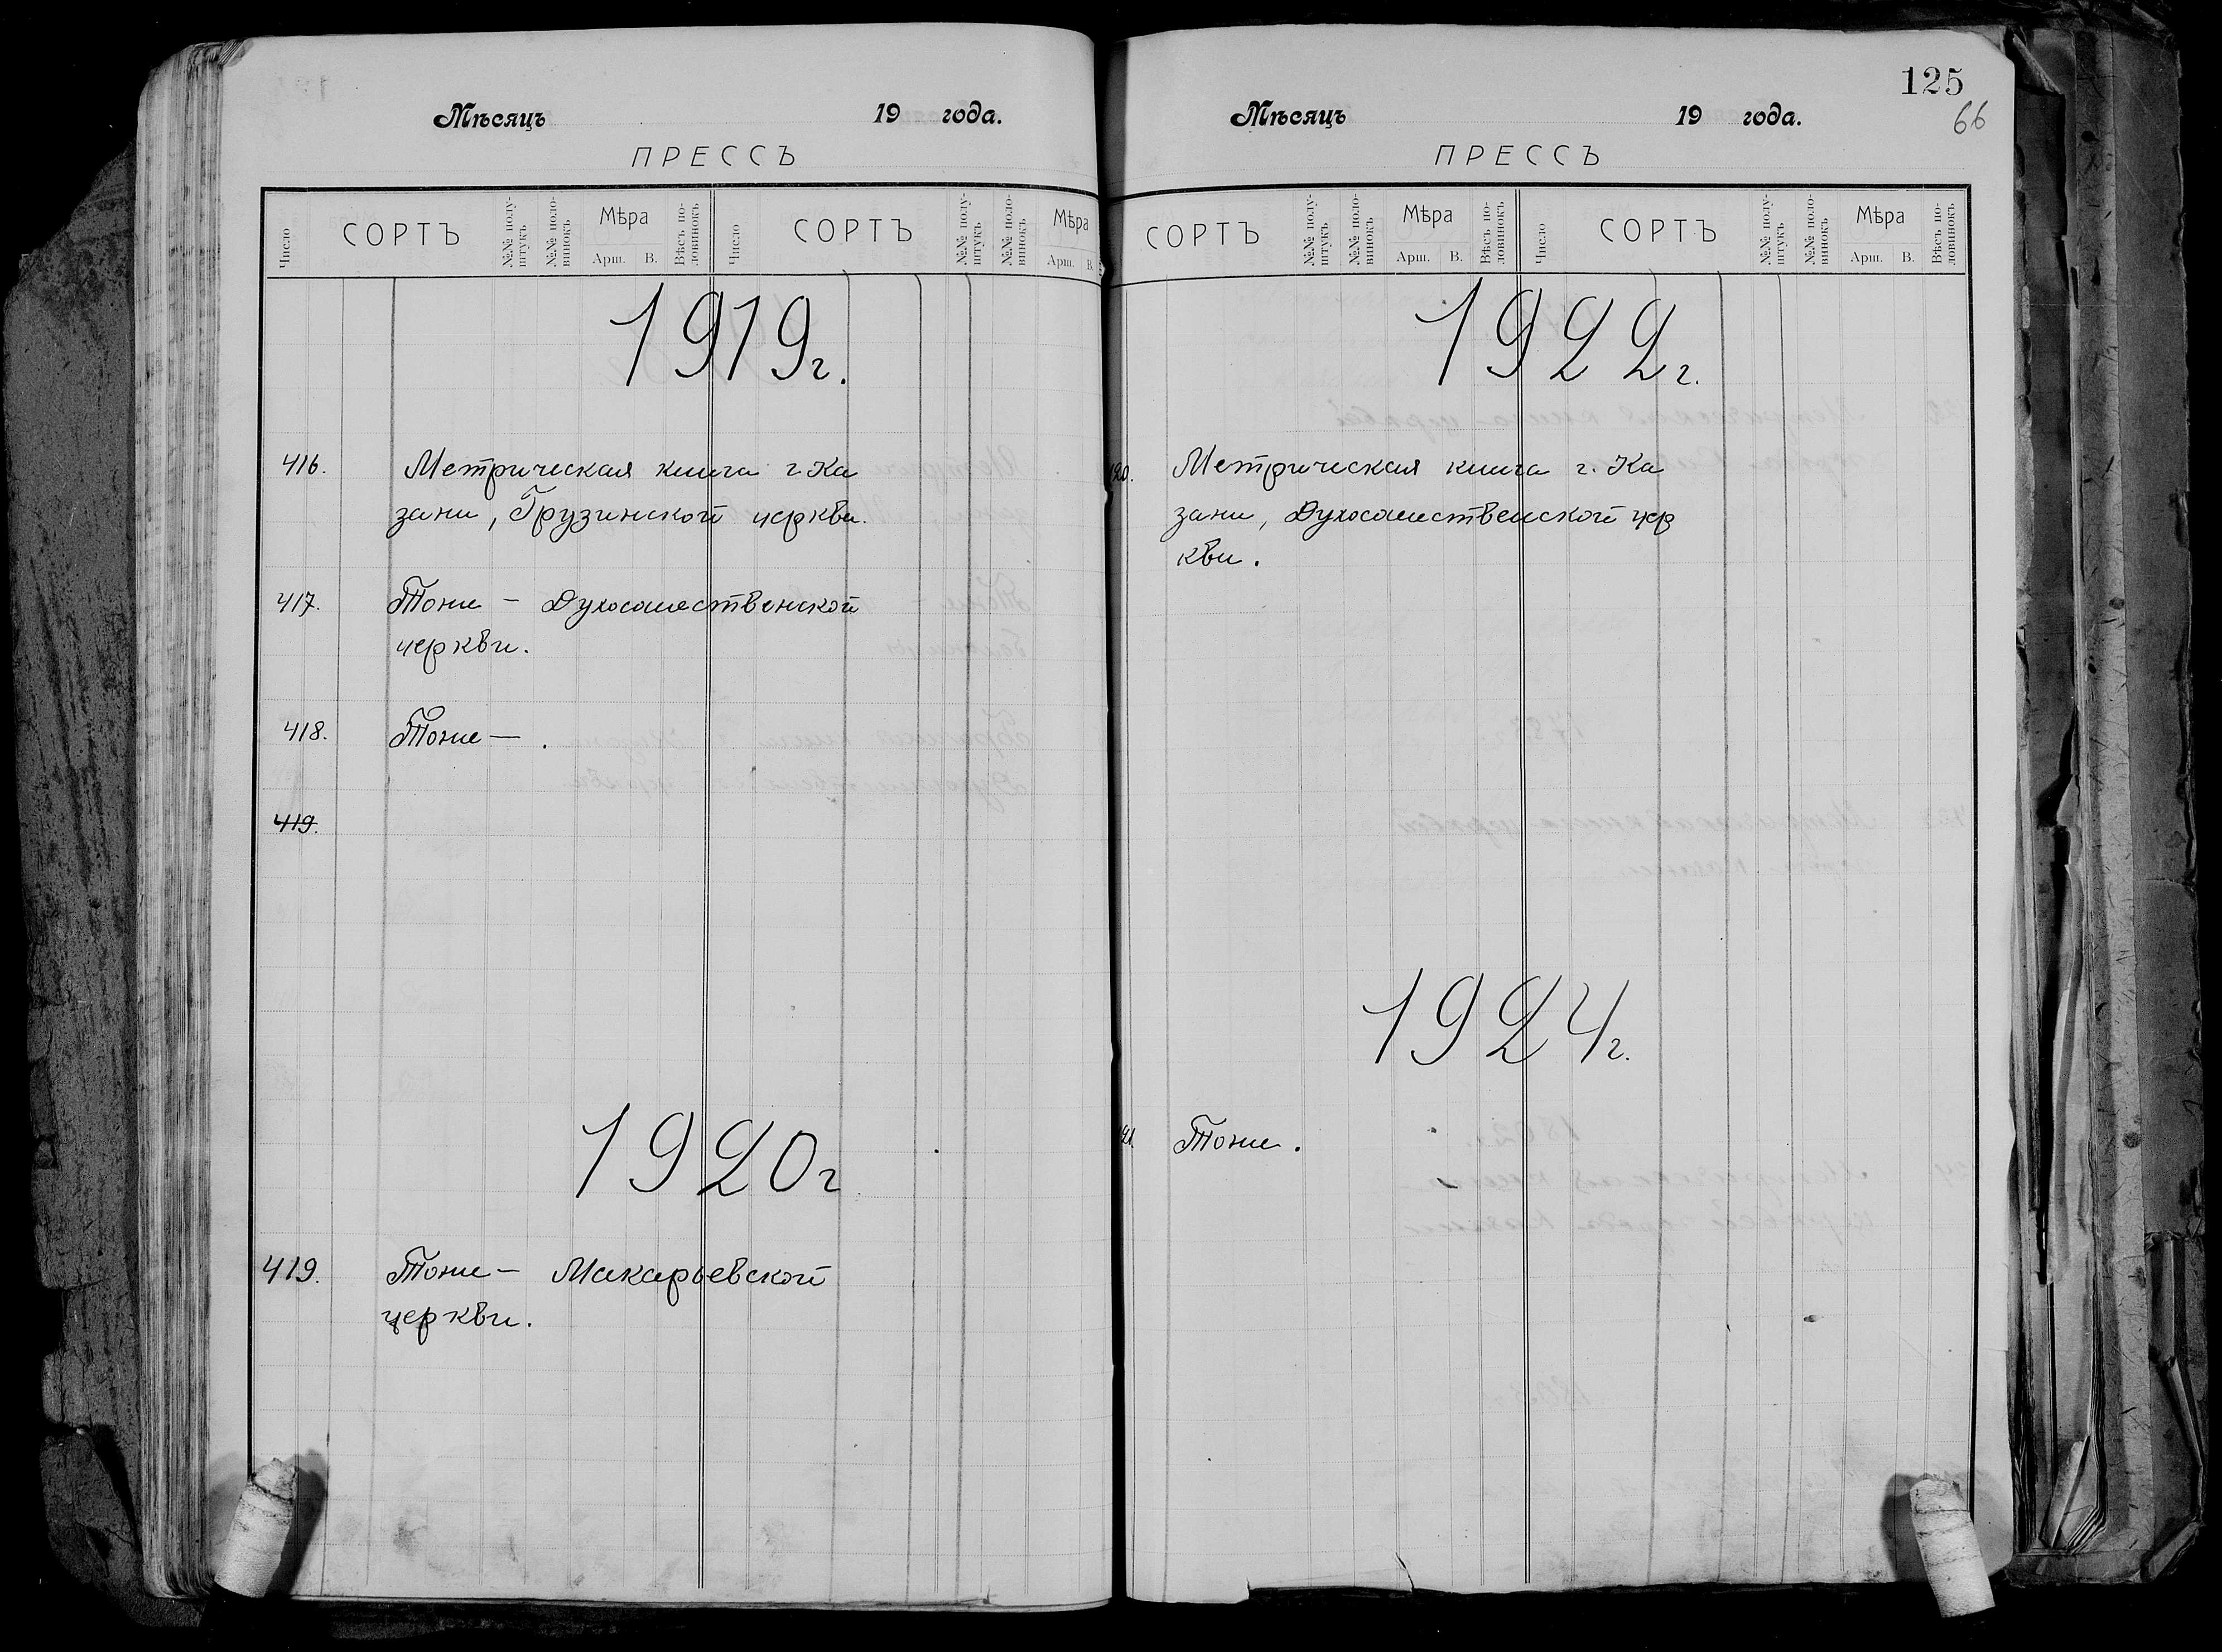 Мѣсяцъ 19 года.
ПРЕССЪ
Число СОРТЪ №№ полу-штукъ №№ поло-винокъ Мѣра Арш. В. Вѣсъ по-ловинокъ Число СОРТЪ №№ полу-штукъ №№ поло-винокъ Мѣра Арш. В.
1919г.
416. Метрическая книга г. Ка
зани, Грузинской церкви.
417. Тоже – Духосошественской
церкви.
418. Тоже – .
419.
1920г
419. Тоже – Макарьевской
церкви.
125
66
Мѣсяцъ 19 года.
ПРЕССЪ
СОРТЪ №№ полу-штукъ №№ поло-винокъ Мѣра Арш. В. Вѣсъ по-ловинокъ Число СОРТЪ №№ полу-штукъ №№ поло-винокъ Мѣра Арш. В. Вѣсъ по-ловинокъ
1922г.
20. Метрическая книга г. Ка
зани, Духосошественской цер
кви.
1924г.
21. Тоже.